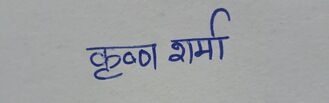 कृष्ण शर्मा